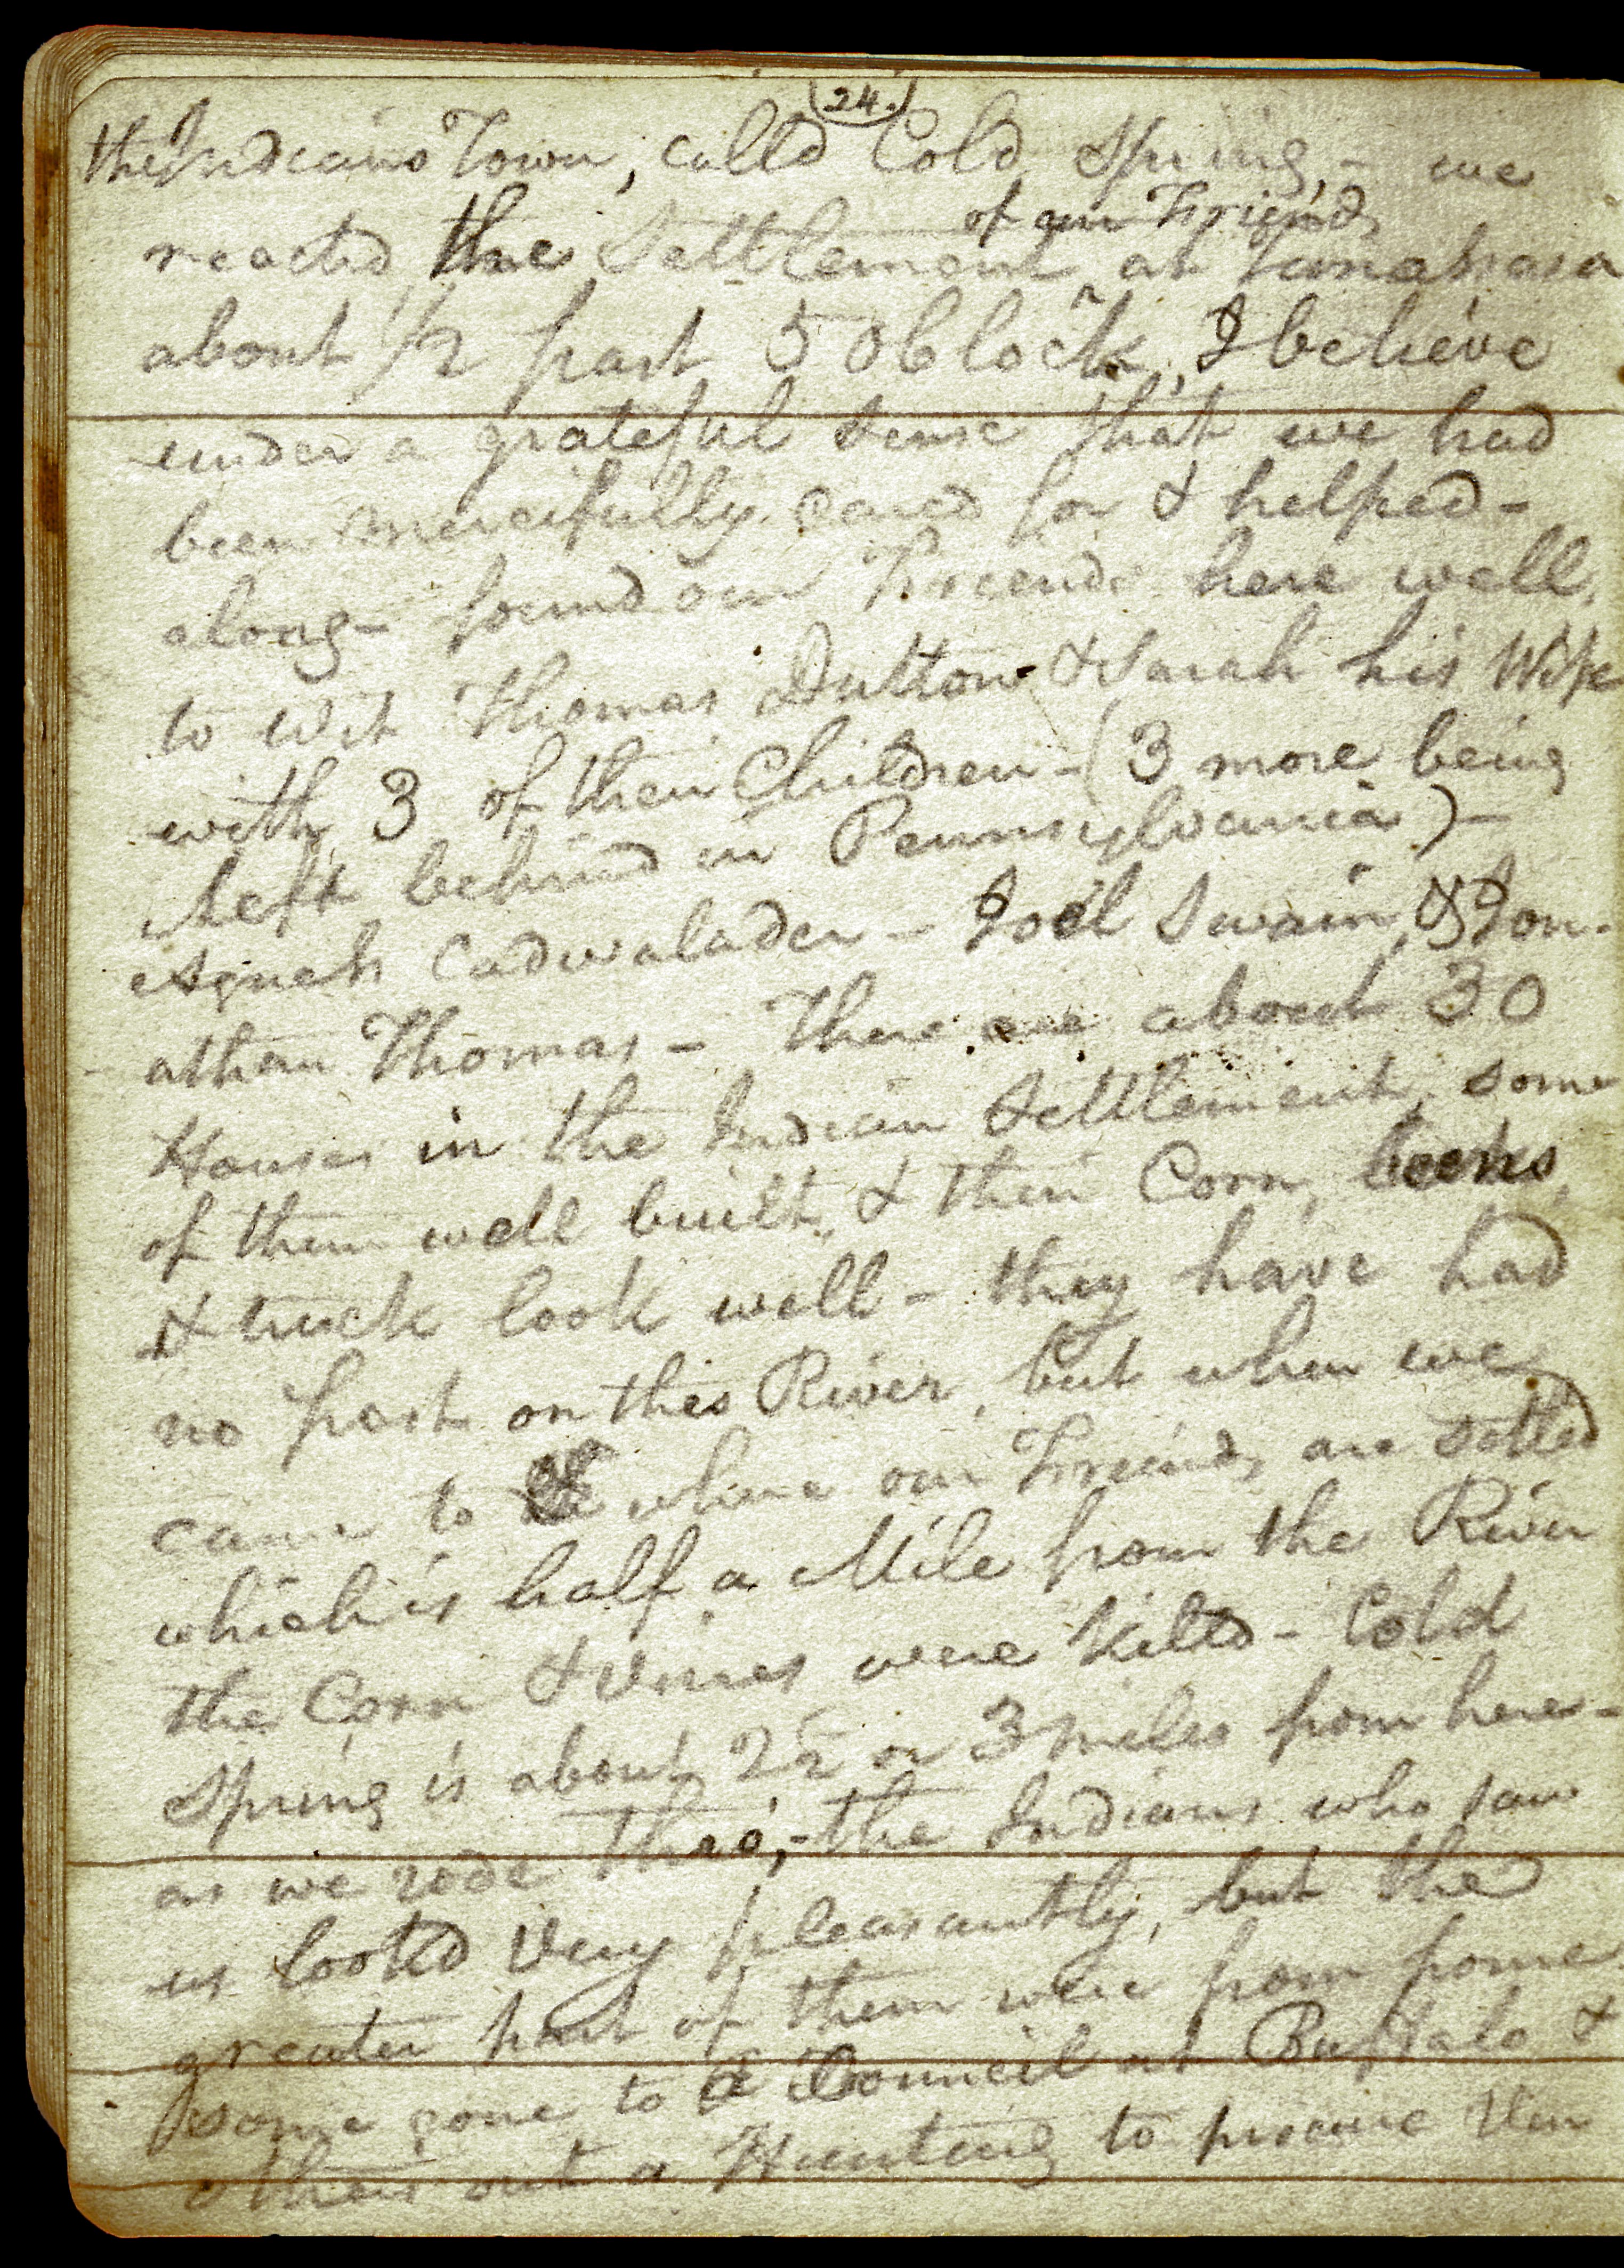 24.
the Indians Town, calld Cold Spring, - we
of our Friends
reacted the Settlement at Tunesassa
about 1/2 past 5 oClock, I believe
under a grateful sense that we had
been mercifully cared for & helped -
along - found our Friends here well,
to wit Thomas Dutton & Sarah his Wife
with 3 of their Children - (3 more being
left behind in Pennsylvania) -
Agnes Cadwalader - Joel Swain, & Jon-
athan Thomas - There are about 30
Houses in the Indian Settlement, some
of them well built, & their Corn,
& truck look well - they have had
no frost on this River, but when we
came to where our Friends are settled
which is half a Mile from the River
the Corn & Vines were killd - Cold
Spring is about 2 1/2 or 3 miles from here -
as we rode thro', - the Indians who saw
us lookd very pleasantly, but the
greater part of them were from home
some gone to a Council at Buffalo &
others out a Hunting to procure Ven